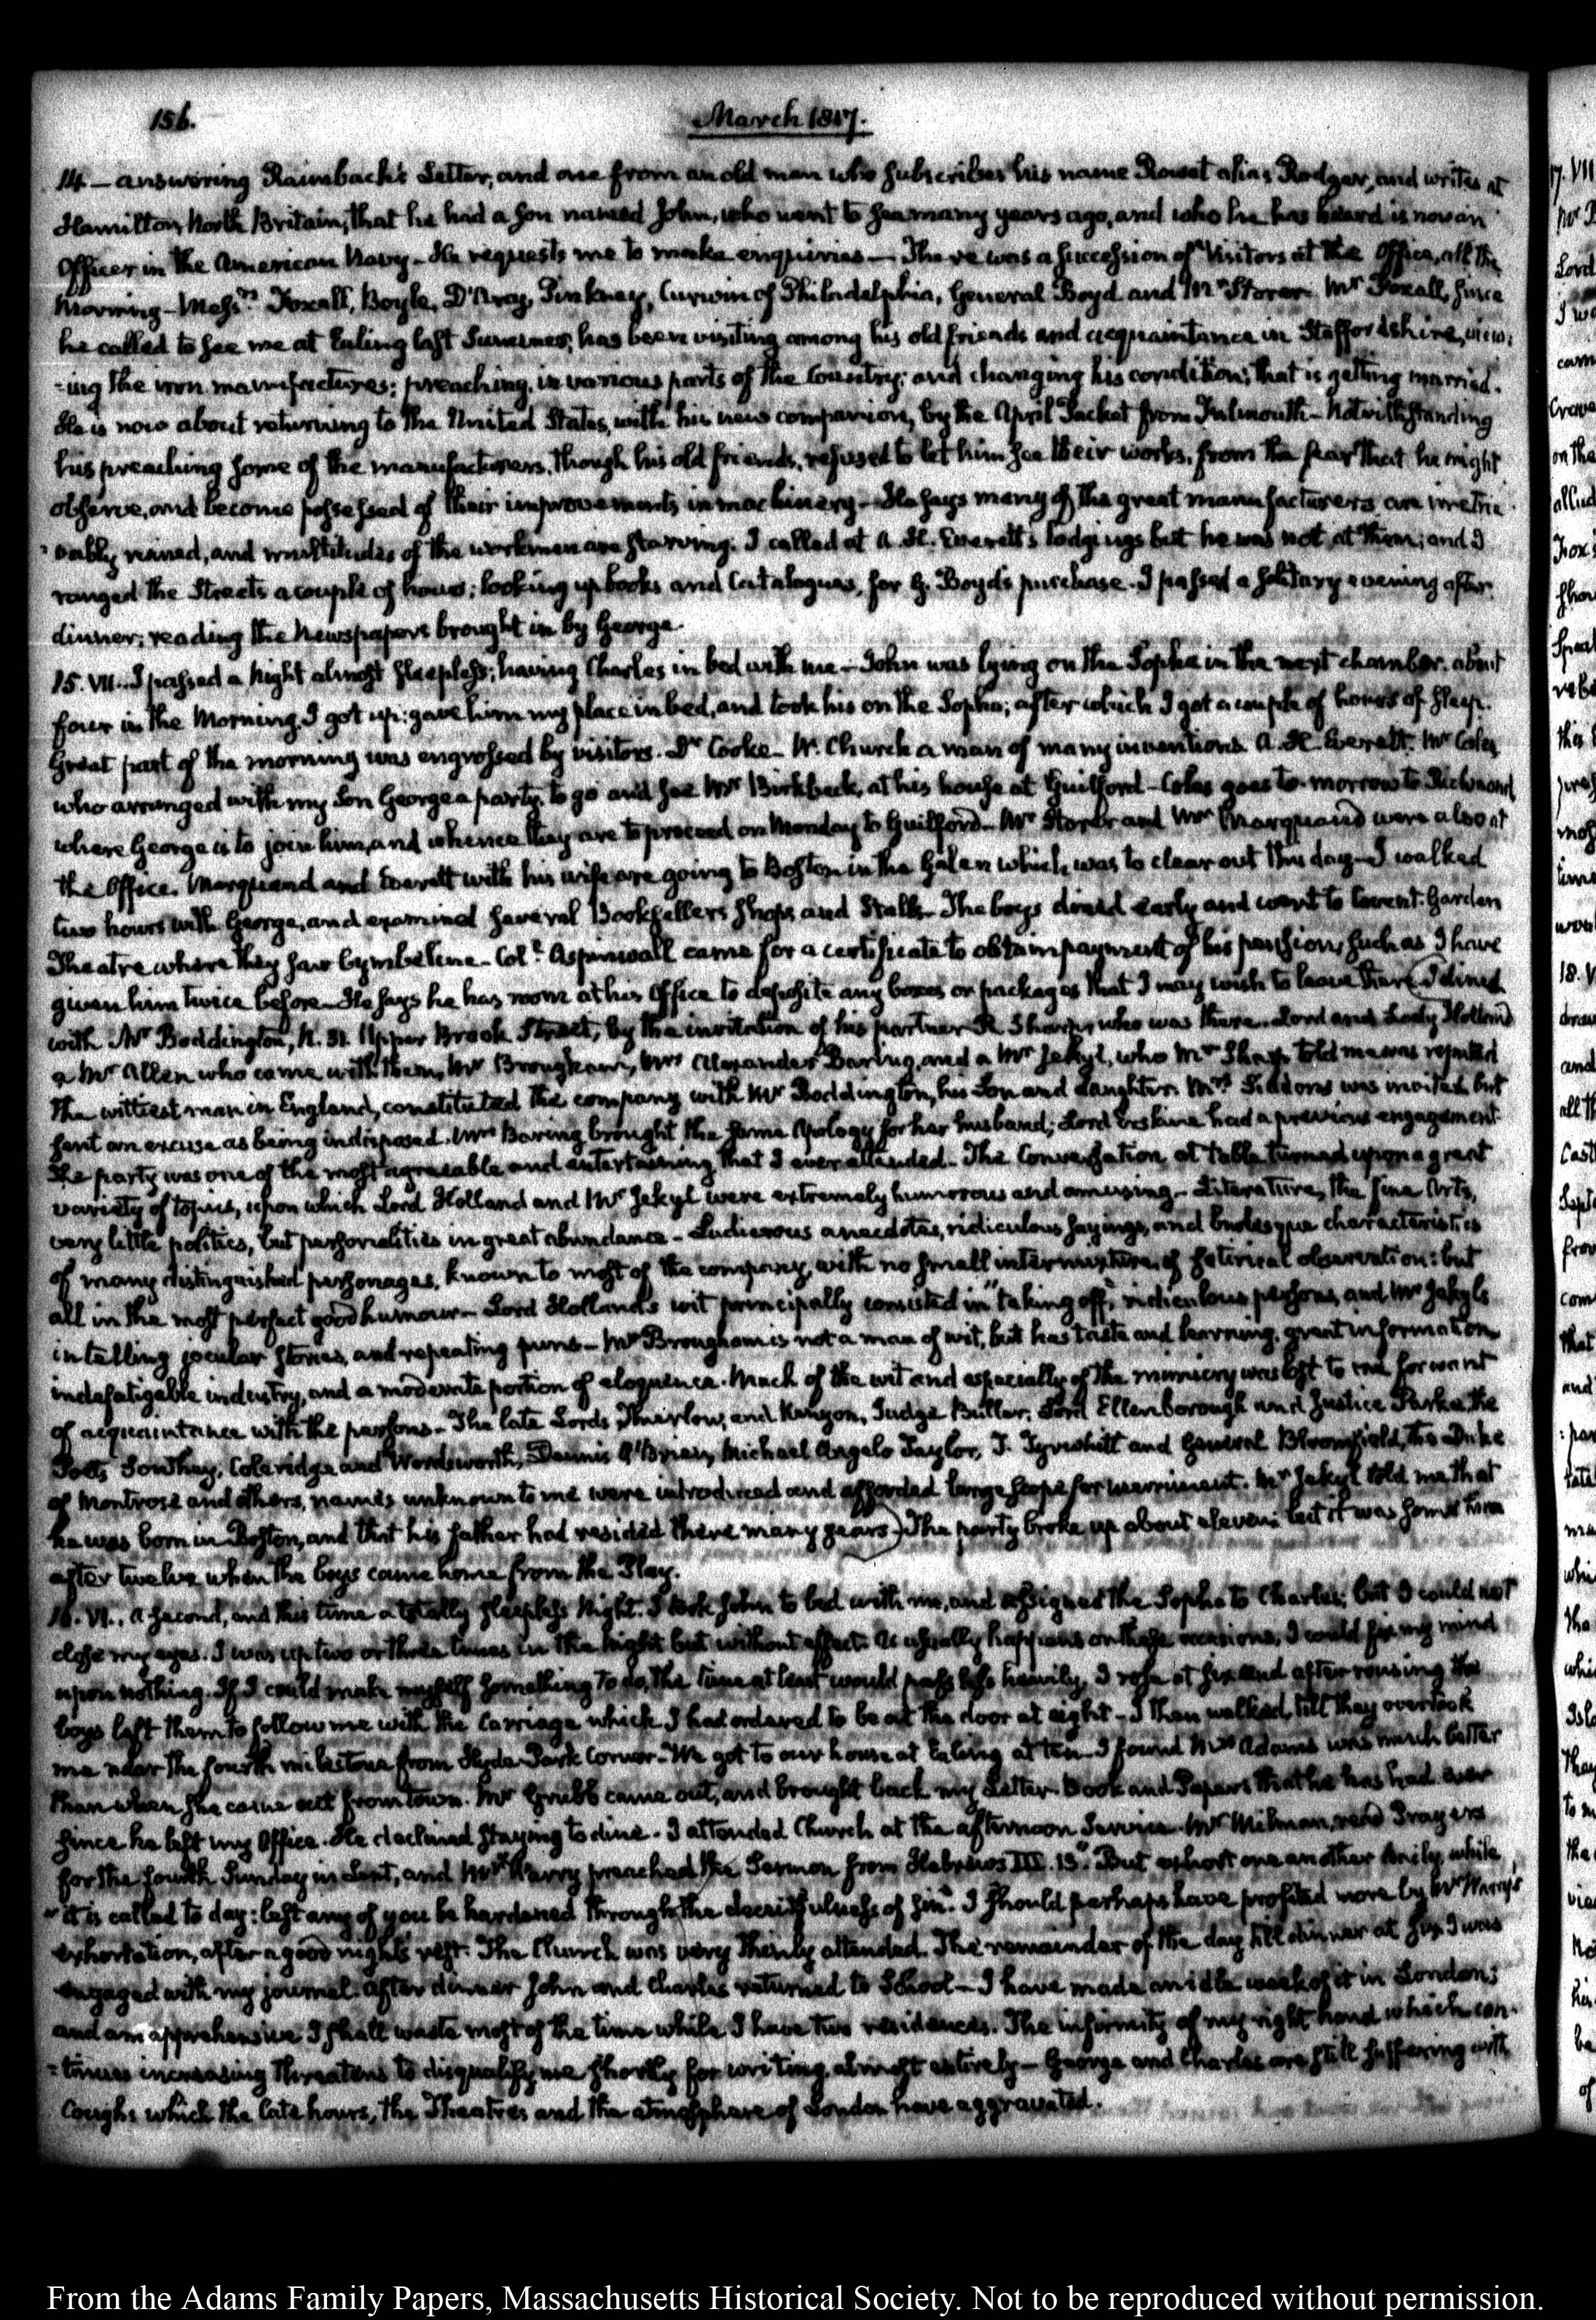 156.
March 1817.
14 — answering Raimbach's Letter, and one from an old man who subscribes his name Rowat alias Rodger, and writes at
Hamilton, North Britain, that he had a son named John, who went to sea many years ago, and who he has heard is now an
Officer in the American Navy — He requests me to make enquiries — There was a succession of Visitors at the Office, all the
Morning — Mess.rs Foxall, Boyle, D'Aray, Pinkney, Curwin of Philadelphia, General Boyd and Mr Storer. Mr Foxall, since
he called to see me at Ealing last Summer, has been visiting among his old friends and acquaintance in Staffordshire, view-
-ing the iron manufactures; preaching, in various parts of the Country; and changing his condition; that is getting married.
He is now about returning to the United States, with his new companion, by the April Packet from Falmouth — Notwithstanding
his preaching some of the manufacturers, though his old friends, refused to let him see their works, from the fear that he might
observe, and become possessed of their improvements in machinery — He says many of the great manufacturers are irretrie-
-vably ruined, and multitudes of the workmen are starving. I called at A. H. Everett's lodgings but he was not at them; and I
ranged the Streets a couple of hours; looking up books and Catalogues, for G. Boyd's purchase. I passed a solitary evening after
dinner; reading the Newspapers brought in by George.
15. VII. I passed a Night almost sleepless; having Charles in bed with me — John was lying on the Sopha in the next chamber. about
four in the Morning, I got up; gave him my place in bed, and took his on the Sopha; after which I got a couple of hours of sleep.
Great part of the morning was engrossed by visitors. Dr Cooke — W. Church a man of many inventions. A. H. Everett. Mr Coles,
who arranged with my Son George a party, to go and see Mr Birkbeck, at his house at Guilford — Coles goes to-morrow to Richmond,
where George is to join him, and whence they are to proceed on Monday to Guilford — Mr Storer and Mr Marquand were also at
the Office. Marquand and Everett with his wife are going to Boston in the Galen which was to clear out this day — I walked
two hours with George, and examined several Booksellers shops and Stalls — The boys dined early and went to Covent-Garden
Theatre where they saw Cymbeline — Col.l Aspinwall came for a certificate to obtain payment of his pension, such as I have
given him twice before — He says he has room at his Office to deposite any boxes or packages that I may wish to leave there (I dined
with Mr Boddington, N. 31. Upper Brook Street, by the invitation of his partner R. Sharp, who was there. Lord and Lady Holland
a Mr Allen who came with them, Mr Brougham, Mrs Alexander Baring, and a Mr Jekyl, who Mr Sharp told me was reputed
the wittiest man in England, constituted the company with Mr Boddington, his Son and daughter. Mrs Siddons was invited but
sent an excuse as being indisposed. Mrs Baring brought the same Apology for her husband; Lord Erskine had a previous engagement.
The party was one of the most agreeable and entertaining that I ever attended — The Conversation at table turned upon a great
variety of topics, upon which Lord Holland and Mr Jekyl were extremely humorous and amusing — Literature, the fine Arts,
very little politics, but personalities in great abundance — Ludicrous anecdotes, ridiculous sayings, and burlesque characteristics
of many distinguished personages, known to most of the company, with no small intermixture, of satirical observation: but
all in the most perfect good humour — Lord Holland's wit principally consisted in "taking off," ridiculous persons, and Mr Jekyls
in telling jocular stories, and repeating puns — Mr Brougham is not a man of wit, but has taste and learning, great information
indefatigable industry, and a moderate portion of eloquence. Much of the wit and especially of the mimicry was lost to me for want
of acquaintance with the persons — The late Lords Thurlow, and Kenyon, Judge Buller, Lord Ellenborough and Justice Parke, the
Poets Southey, Coleridge and Wordsworth, Dennis O'Brien, Michael Angelo Taylor, T. Tyrwhitt and General Bloomfield, the Duke
of Montrose and others, names unknown to me were introduced and afforded large scope for merriment. Mr Jekyl told me that
he was born in Boston, and that his father had resided there many years) The party broke up about eleven: but it was some time
after twelve when the boys came home from the Play.
16. VI. A second, and this time a totally sleepless Night. I took John to bed with me, and assigned the Sopha to Charles; but I could not
close my eyes. I was up two or three times in the Night but without effect. As usually happens on these occasions, I could fix my mind
upon nothing. If I could make myself something to do, the time at least would pass less heavily, I rose at six and after rousing the
boys left them to follow me with the Carriage which I had ordered to be at the door at eight — I then walked till they overtook
me near the fourth milestone from Hyde-Park Corner — We got to our house at Ealing at ten. I found Mrs Adams was much better
than when she came out from town. Mr Grubb came out, and brought back my Letter-Book and Papers that he has had ever
since he left my Office. He declined staying to dine. I attended Church at the afternoon Service. Mr Milman, read Prayers
for the fourth Sunday in Lent, and Mr Harry preached the Sermon from Hebrews III. 13. "But exhort one another daily, while
"it is called to day: lest any of you be hardened through the deceitfulness of sin." I should perhaps have profited more by Mr Harry's
exhortation, after a good night's rest. The Church was very thinly attended. The remainder of the day till dinner at six I was
engaged with my journal. After dinner John and Charles returned to School — I have made an idle week of it in London;
and am apprehensive I shall waste most of the time while I have two residences. The infirmity of my right hand which con-
-tinues increasing threatens to disqualify me shortly for writing, almost entirely — George and Charles are still suffering with
Coughs which the late hours, the Theatres and the atmosphere of London have aggravated.
From the Adams Family Papers, Massachusetts Historical Society. Not to be reproduced without permission.